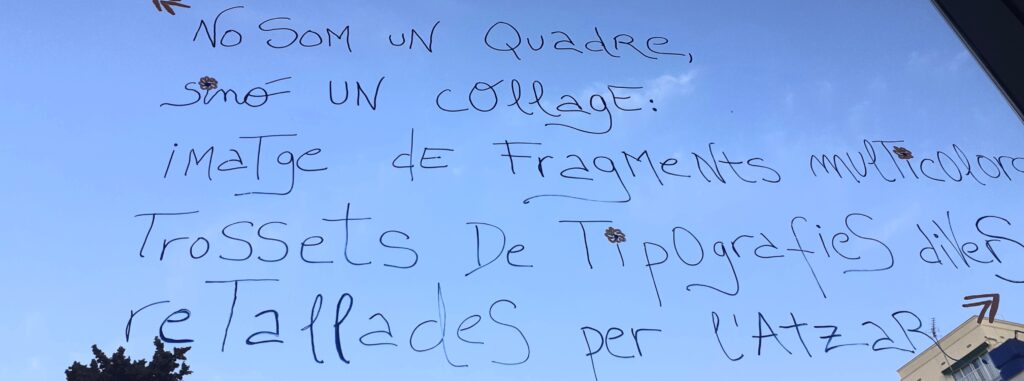 « No som un quadre,
sinó un collage:
imatge de fragments multicolors
trossets de tipografies divers
retallades per l'atzar »